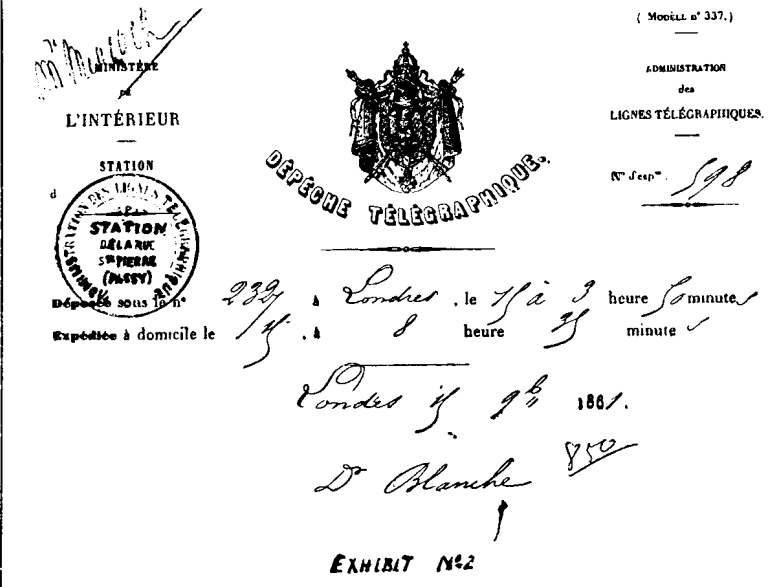 MINISTÈRE
DE
L'INTÉRIEUR
STATION
d
ADMINISTRATION DES LIGNES TÉLÉGRAPHIQUES
STATION
DE LA RUE
St PIERRE
(PASSY)
DÉPÊCHE TÉLÉGRAPHIQUE.
( MODÈLE n° 337.)
ADMINISTRATION
des
LIGNES TÉLÉGRAPHIQUES.
N° d'esp 598
Déposée sous le n° à Londres, le 15 à 3 heure 50 minutes
Expédiée à domicile le 15, à 8 heure 35 minute
Londres 15 9b 1861.
850
Dr Blanche
EXHIBIT No 2